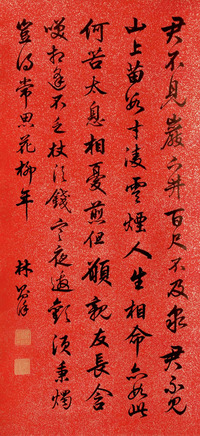 君不見巖下井百尺不及泉君不見
山上苗數寸凌雲煙人生相命亦如此
何苦太息相憂煎但願親友長含
咲相逢不乏杖頭錢寒夜邀歡須秉燭
豈得常思花柳年
林則徐